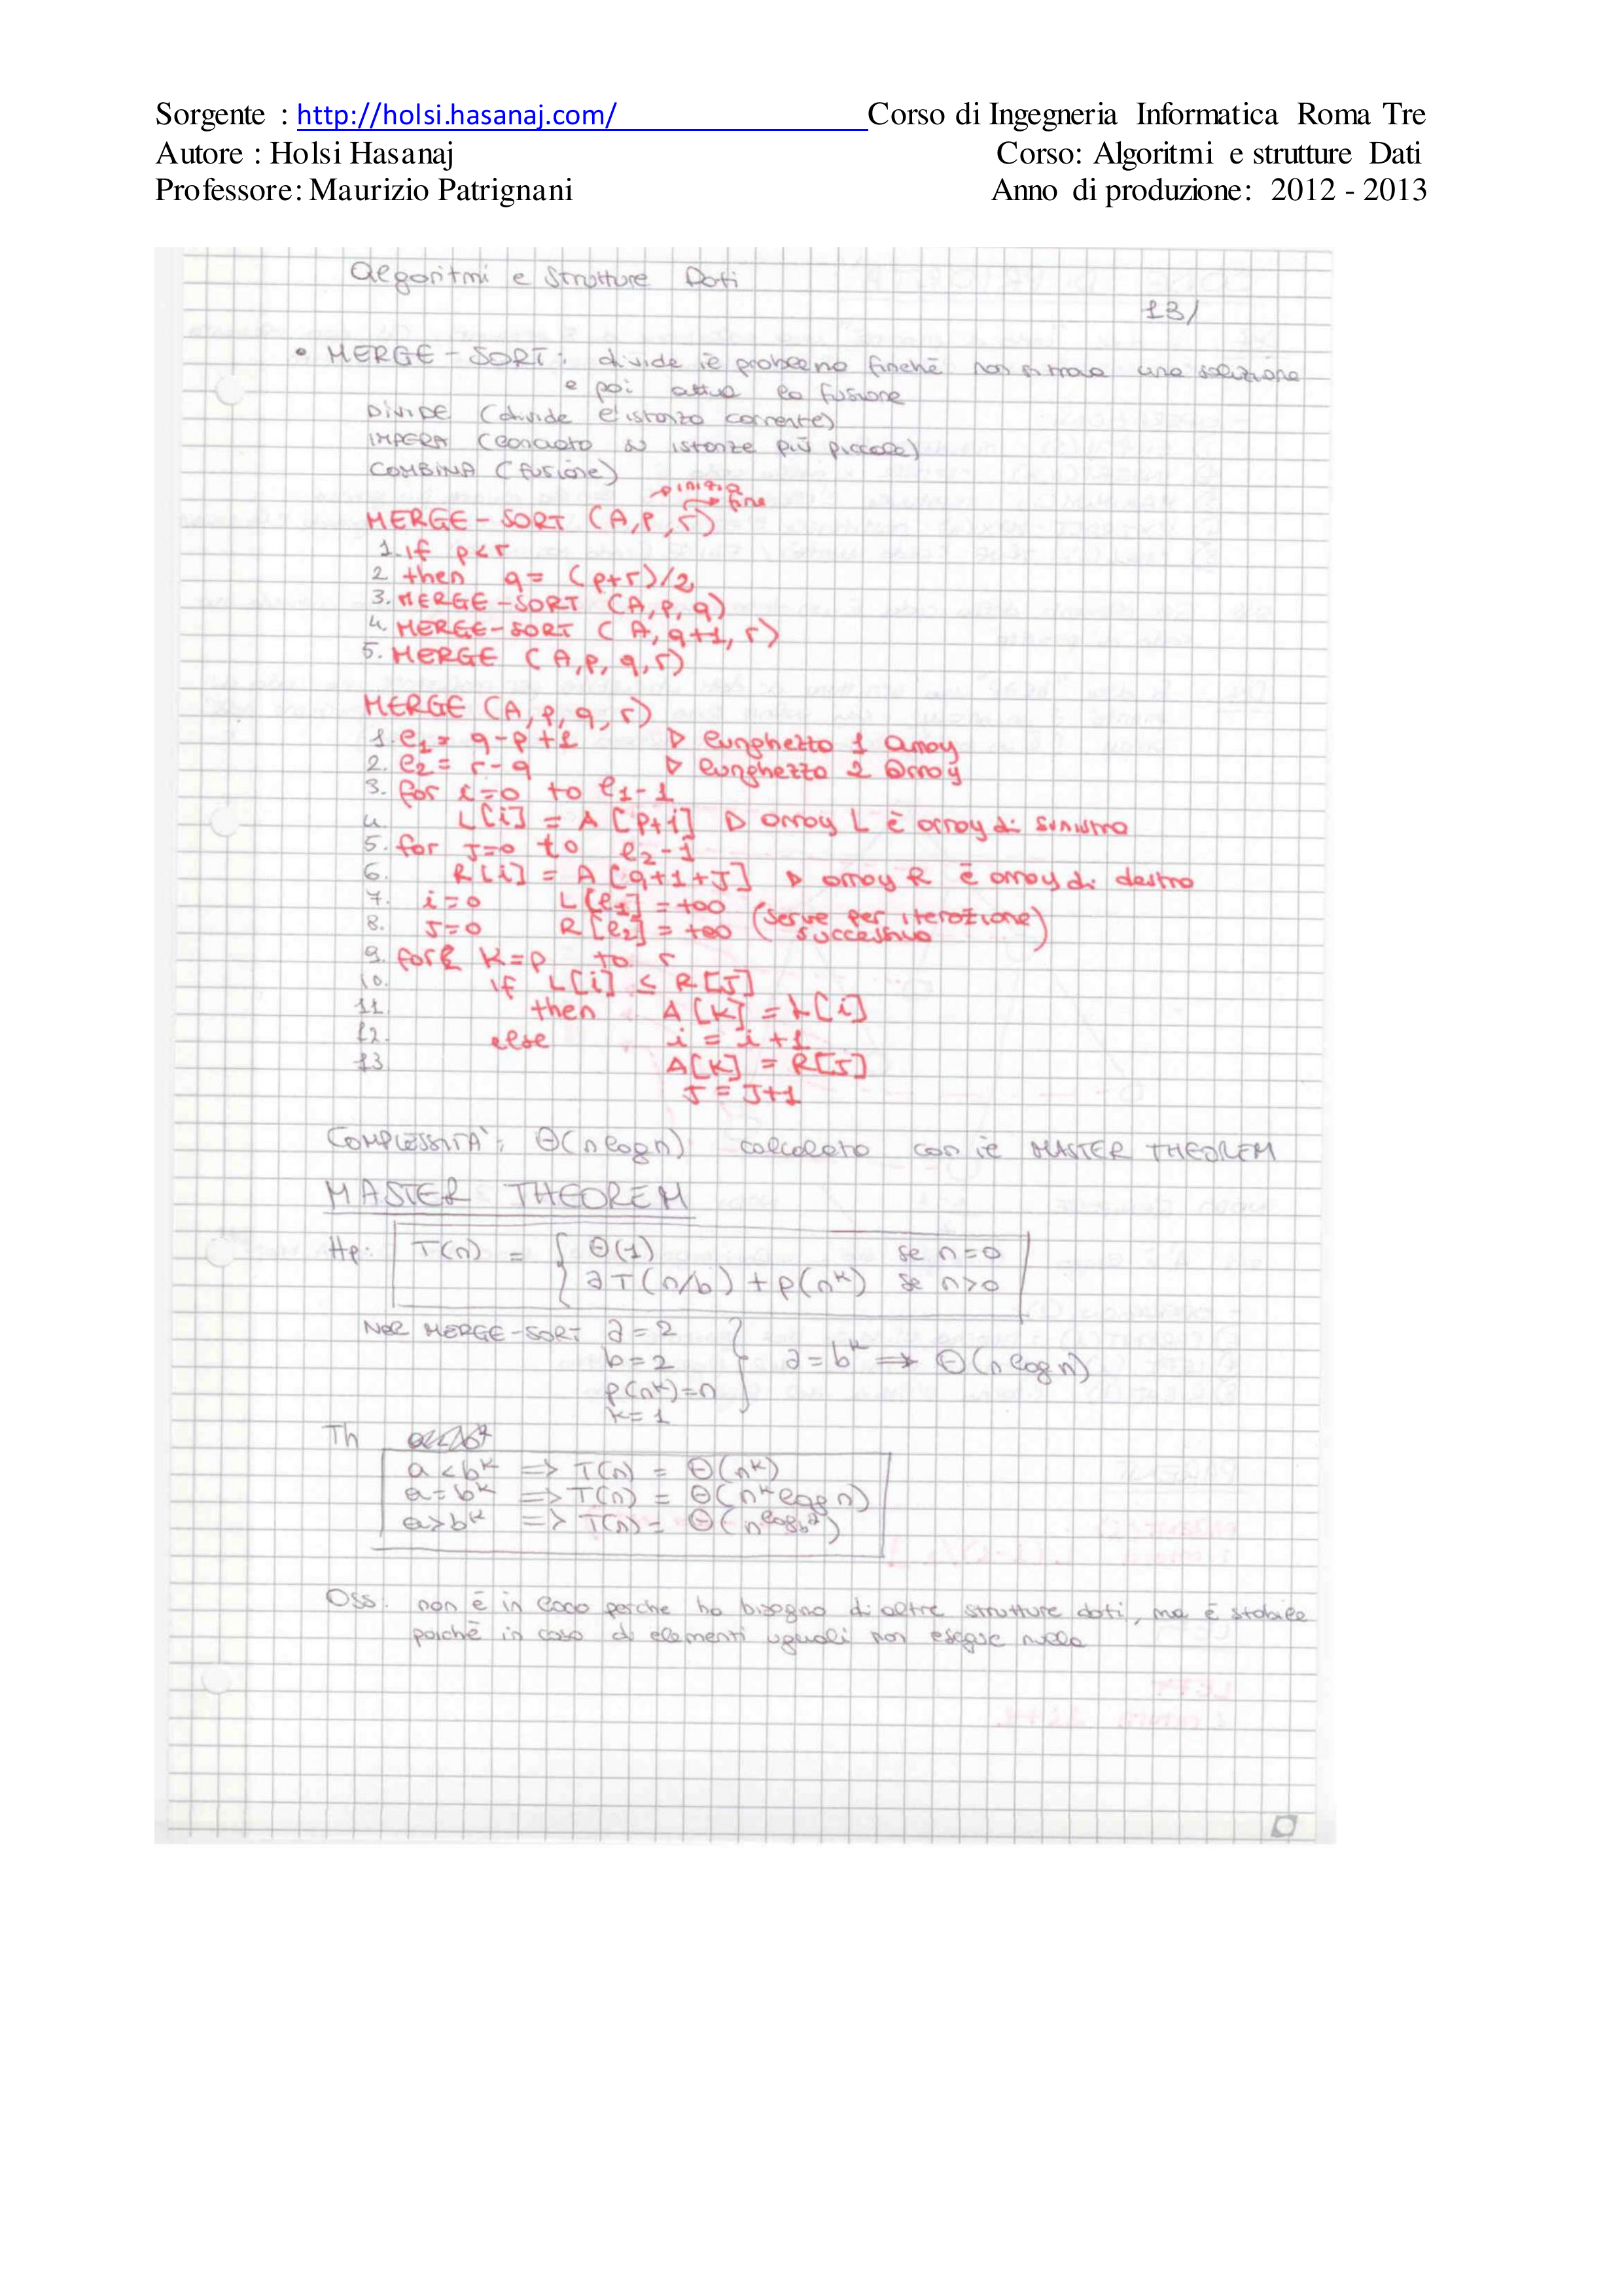 Sorgente : http://holsi.hasanaj.com/ Corso di Ingegneria Informatica Roma Tre
Autore : Holsi Hasanaj Corso: Algoritmi e strutture Dati
Professore: Maurizio Patrignani Anno di produzione: 2012 - 2013
Algoritmi e Strutture Dati
13/
• MERGE - SORT: divide il problema finchè non si trova una soluzione
e poi attua la fusione
DIVIDE (divide l'istanza corrente)
IMPERA (lanciato su istanze più piccole)
COMBINA (fusione)
inizio
fine
MERGE - SORT (A, p, r)
1. if p < r
2 then q = (p+r)/2
3. MERGE - SORT (A, p, q)
4. MERGE - SORT (A, q+1, r)
5. MERGE (A, p, q, r)
MERGE (A, p, q, r)
1. l1 = q-p+1 ▷ lunghezza 1 array
2. l2 = r-q ▷ lunghezza 2 array
3. for i=0 to l1-1
4 L[i] = A[p+i] ▷ array L è array di sinistra
5. for J=0 to l2-1
6. R[i] = A[q+1+J] ▷ array R è array di destra
7. i=0 L[l1] = +∞ (serve per iterazione
8. J=0 R[l2] = +∞ successiva)
9. for K=p to r
10. if L[i] ≤ R[J]
11 then A[K] = L[i]
12. else i = i+1
13 A[K] = R[J]
J = J+1
COMPLESSITA': Θ(n log n) calcolata con il MASTER THEOREM
MASTER THEOREM
Hp: T(n) = { Θ(1) se n=0
a T(n/b) + p(n^k) se n>0
Nel MERGE-SORT a=2
b=2 } a=b^k => Θ(n log n)
p(n^k)=n
k=1
Th
a<b^k => T(n) = Θ(n^k)
a=b^k => T(n) = Θ(n^k log n)
a>b^k => T(n) = Θ(n^log_b a)
Oss. non è in loco perche ha bisogno di altre strutture dati, ma è stabile
poichè in caso di elementi uguali non esegue nulla